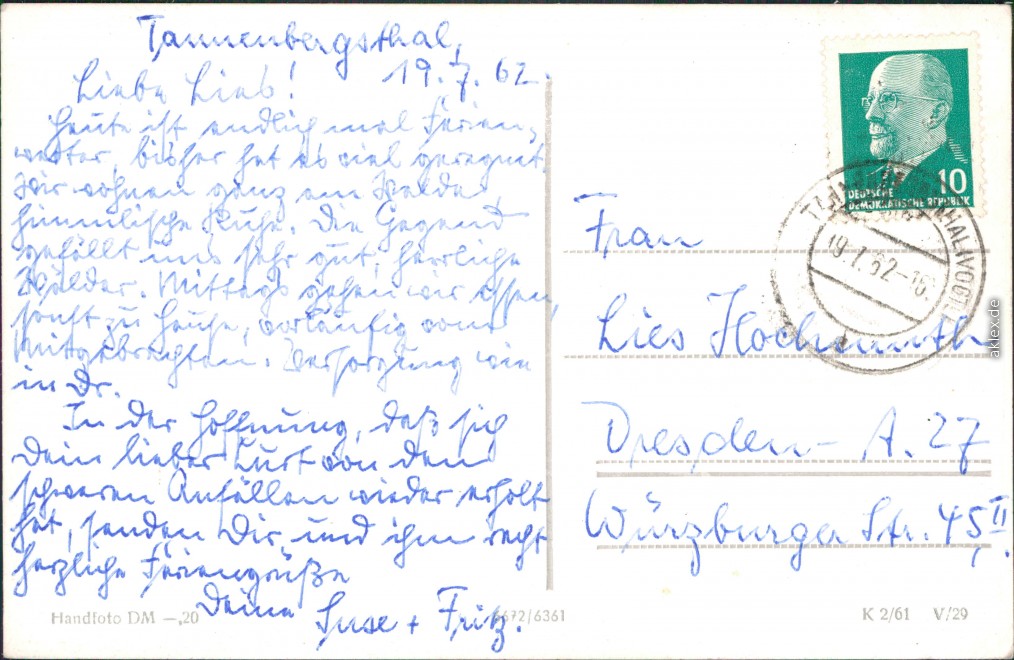 Tannenbergsthal,
19.7.62.
Liebe Lies!
Heute ist endlich mal Ferien-
wetter, bisher hat es viel geregnet.
Wir wohnen ganz am Walde,
himmlische Ruhe. Die Gegend
gefällt uns sehr gut, herrliche
Wälder. Mittags gehen wir essen,
sonst zu Hause, vorläufig vom
Mitgebrachten. Versorgung wie
in Dr.
In der Hoffnung, daß sich
Dein lieber Kurt von den
schweren Anfällen wieder erholt
hat, senden Dir und ihm recht
herzliche Feriengrüße
Deine Suse + Fritz.
Handfoto DM —,20
6672/6361
10
DEUTSCHE
DEMOKRATISCHE REPUBLIK
19.7.62-16
Frau
Lies Hochmuth
Dresden- A. 27
Würzburger Str. 45 II.
K 2/61 V/29
aklex.de